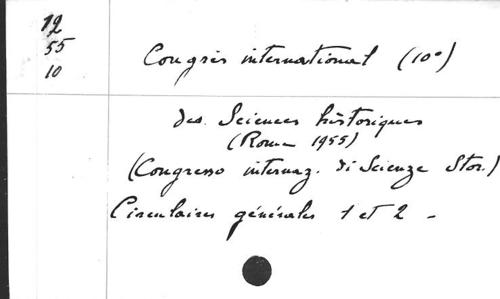 12
55
10
Congrès international (10°)
des Sciences historiques
(Roma 1955)
(Congresso internaz. di Scienze Stor.)
Circulaires générales 1 et 2 -